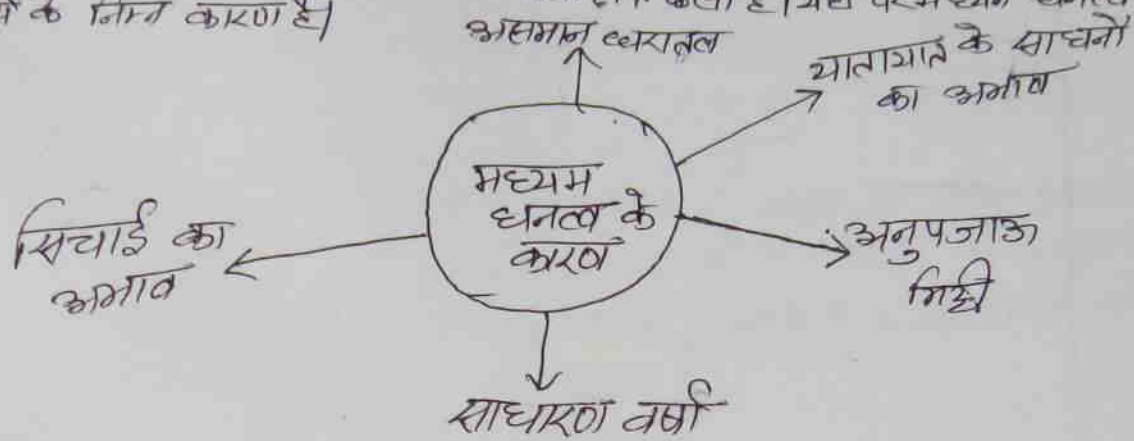 के निम्न कारण है।
है। यहाँ पर मध्यम
असमान धरातल
यातायात के साधनों
का अभाव
मध्यम
घनत्व के
कारण
सिंचाई का
अभाव
अनुपजाऊ
मिट्टी
साधारण वर्षा